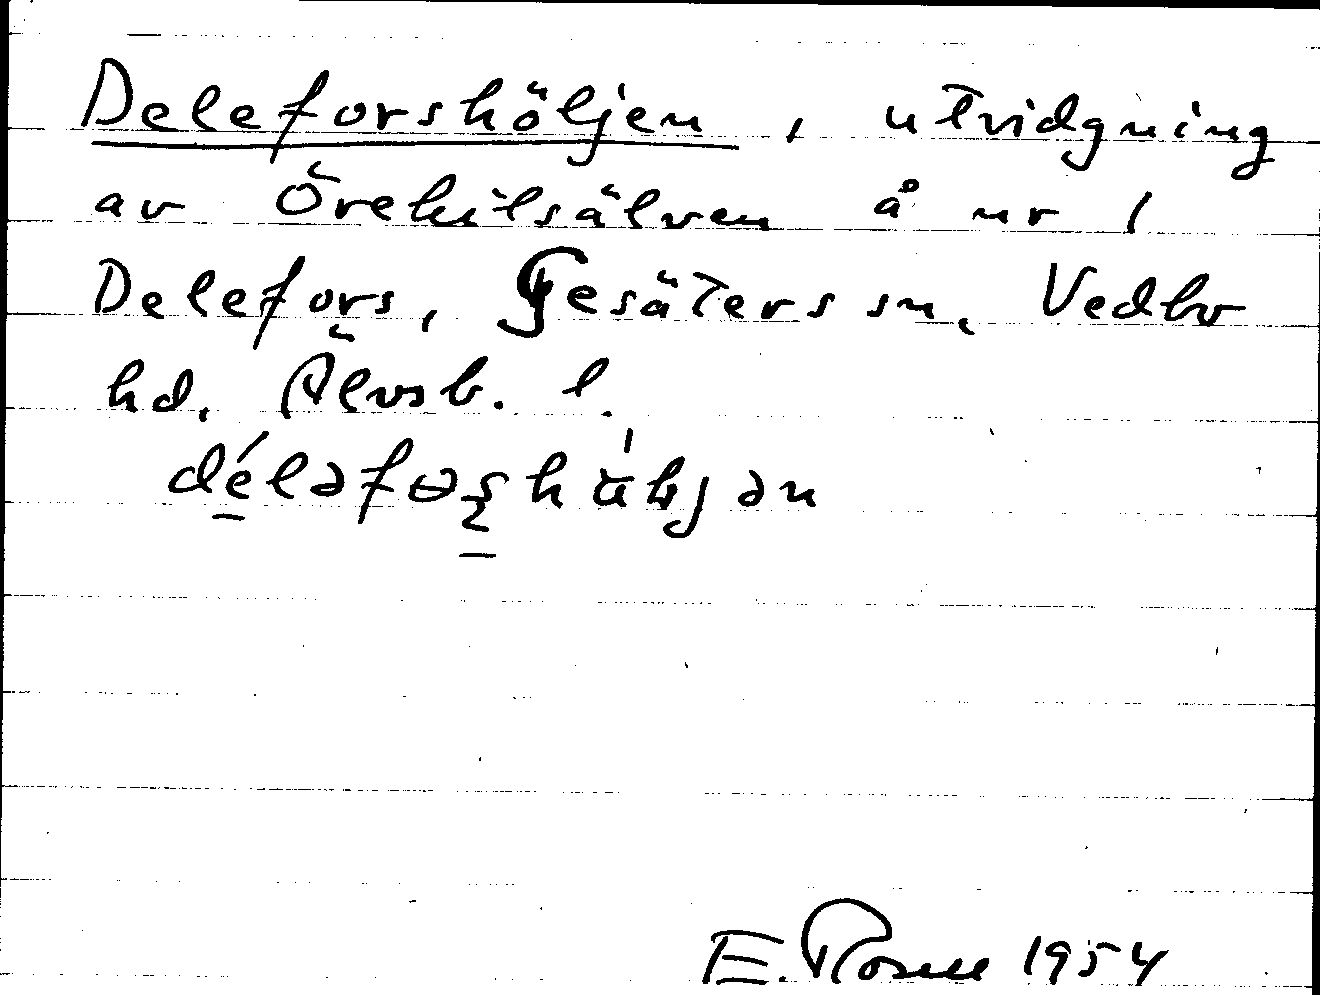 Deleforshöljen, utvidgning
av Örekilsälven å nr 1
Delefors, Gesäters sn, Vedbo
hd, Älvsb. l.
E. Rosell 1954